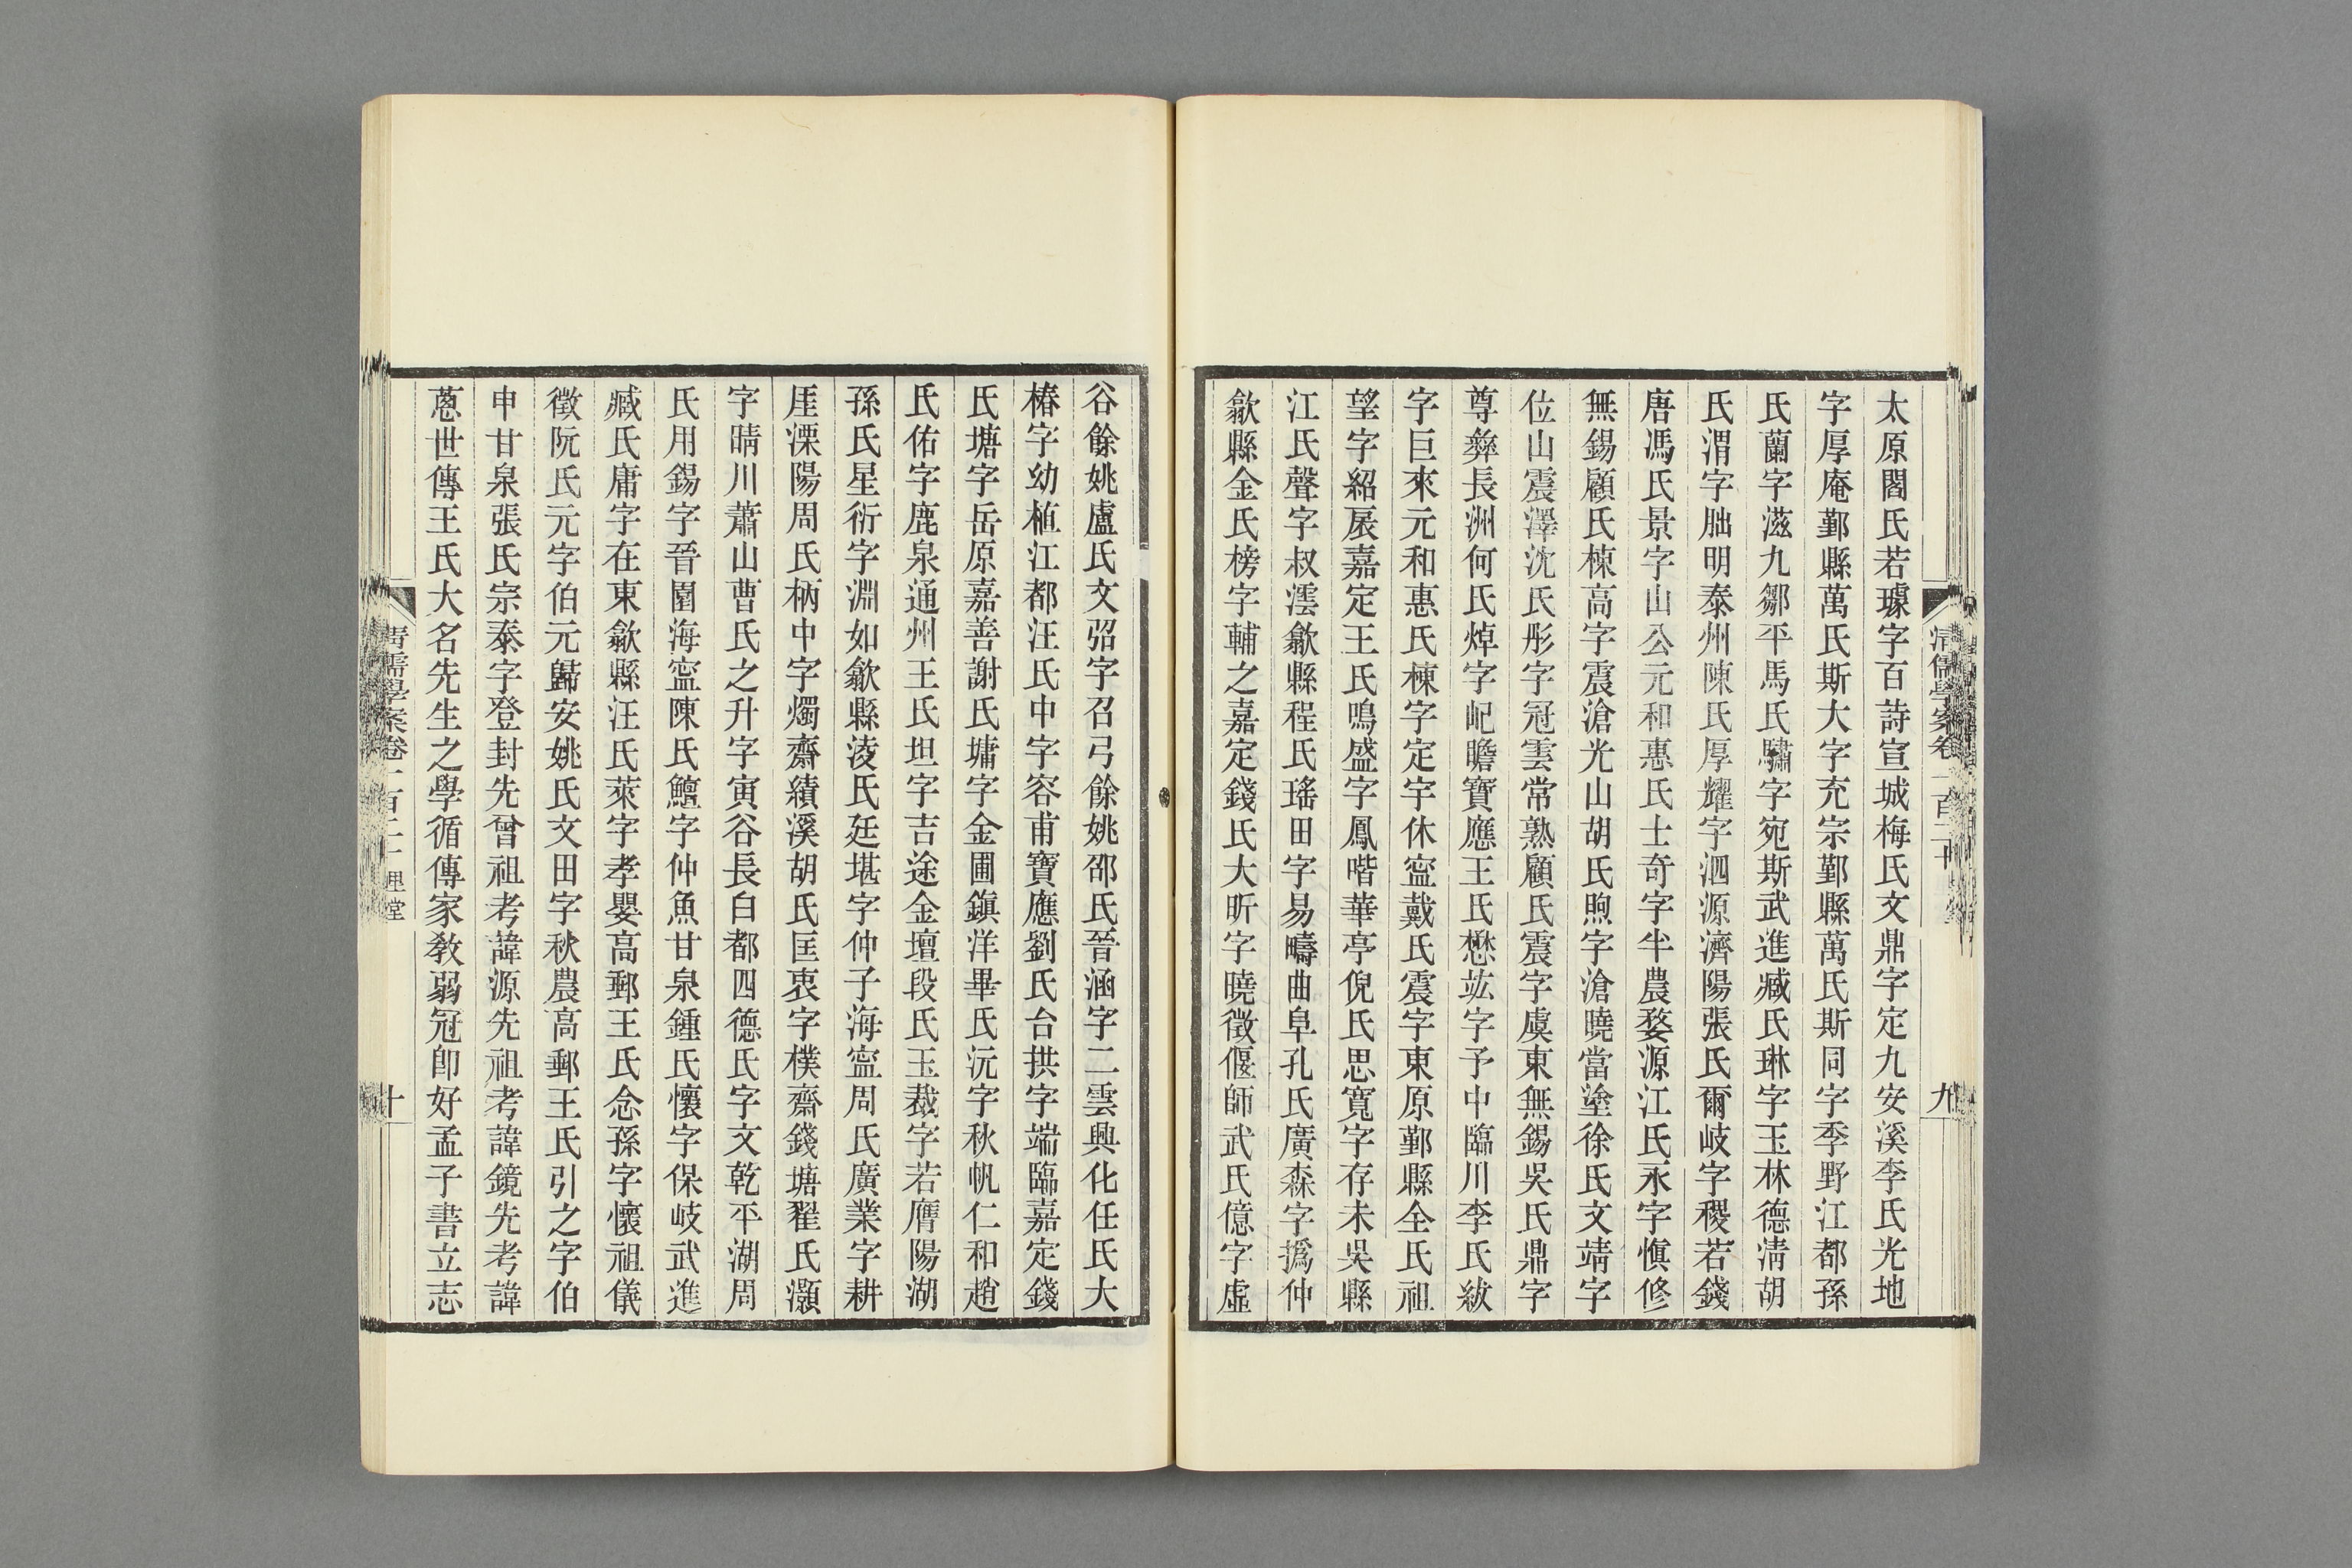 太原閻氏若璩字百詩宣城梅氏文鼎字定九安溪李氏光地
字厚庵鄞縣萬氏斯大字充宗鄞縣萬氏斯同字季野江都孫
氏蘭字滋九鄒平馬氏驌字宛斯武進臧氏琳字玉林德清胡
氏渭字朏明泰州陳氏厚耀字泗源濟陽張氏爾岐字稷若錢
唐馮氏景字山公元和惠氏士奇字半農婺源江氏永字慎修
無錫顧氏棟高字震滄光山胡氏煦字滄曉當塗徐氏文靖字
位山震澤沈氏彤字冠雲常熟顧氏震字虞東無錫吳氏鼎字
尊彝長洲何氏焯字屺瞻寶應王氏懋竑字予中臨川李氏紱
字巨來元和惠氏棟字定宇休寧戴氏震字東原鄞縣全氏祖
望字紹扆嘉定王氏鳴盛字鳳喈華亭倪氏思寬字存未吳縣
江氏聲字叔澐歙縣程氏瑤田字易疇曲阜孔氏廣森字撝仲
歙縣金氏榜字輔之嘉定錢氏大昕字曉徵偃師武氏億字虛
清儒學案卷一百二十
九
谷餘姚盧氏文弨字召弓餘姚邵氏晉涵字二雲興化任氏大
椿字幼植江都汪氏中字容甫寶應劉氏台拱字端臨嘉定錢
氏塘字岳原嘉善謝氏墉字金圃鎮洋畢氏沅字秋帆仁和趙
氏佑字鹿泉通州王氏坦字吉途金壇段氏玉裁字若膺陽湖
孫氏星衍字淵如歙縣淩氏廷堪字仲子海寧周氏廣業字耕
厓溧陽周氏柄中字燭齋績溪胡氏匡衷字樸齋錢塘翟氏灝
字晴川蕭山曹氏之升字寅谷長白都四德氏字文乾平湖周
氏用錫字晉園海寧陳氏鱣字仲魚甘泉鍾氏懷字保岐武進
臧氏庸字在東歙縣汪氏萊字孝嬰高郵王氏念孫字懷祖儀
徵阮氏元字伯元歸安姚氏文田字秋農高郵王氏引之字伯
申甘泉張氏宗泰字登封先曾祖考諱源先祖考諱鏡先考諱
蔥世傳王氏大名先生之學循傳家教弱冠卽好孟子書立志
清儒學案卷一百二十 里堂
十